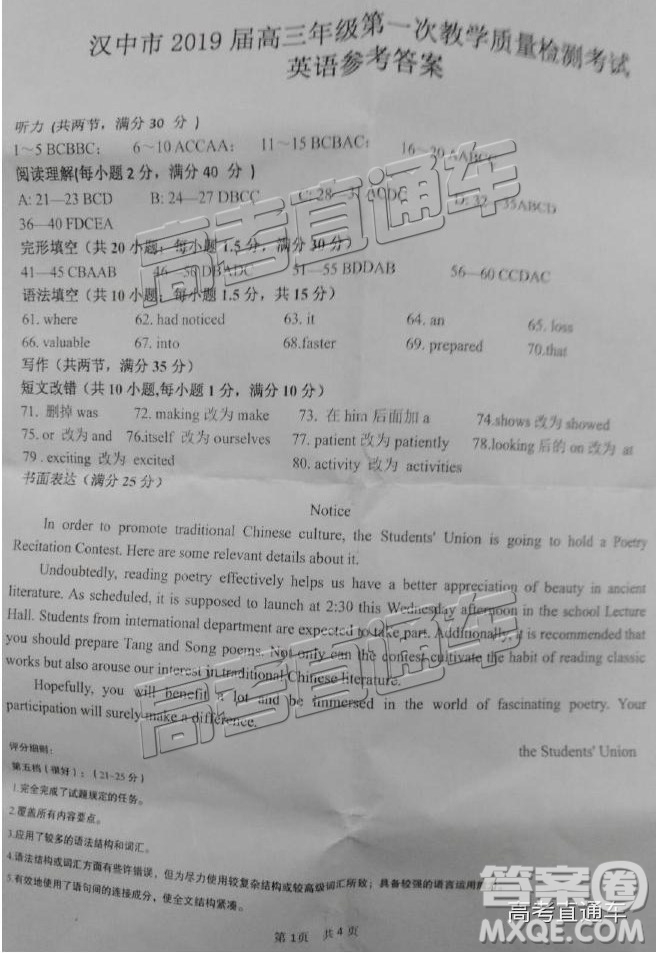 汉中市 2019 届高三年级第一次教学质量检测考试
英语参考答案
听力 (共两节，满分 30 分 )
1～5 BCBBC; 6～10 ACCAA; 11～15 BCBAC; 16～20 AABCC
阅读理解(每小题 2 分，满分 40 分 )
A: 21—23 BCD B: 24—27 DBCC C: 28—31 ACDC D: 32—35ABCD
36—40 FDCEA
完形填空（共 20 小题；每小题 1.5 分，满分 30 分）
41—45 CBAAB 46—50 DBADC 51—55 BDDAB 56—60 CCDAC
语法填空（共 10 小题；每小题 1.5 分，共 15 分）
61. where 62. had noticed 63. it 64. an 65. loss
66. valuable 67. into 68.faster 69. prepared 70.that
写作（共两节，满分 35 分）
短文改错（共 10 小题,每小题 1 分，满分 10 分）
71. 删掉 was 72. making 改为 make 73. 在 him 后面加 a 74.shows 改为 showed
75. or 改为 and 76.itself 改为 ourselves 77. patient 改为 patiently 78.looking 后的 on 改为 at
79 . exciting 改为 excited 80. activity 改为 activities
书面表达（满分 25 分）
Notice
In order to promote traditional Chinese culture, the Students' Union is going to hold a Poetry
Recitation Contest. Here are some relevant details about it.
Undoubtedly, reading poetry effectively helps us have a better appreciation of beauty in ancient
literature. As scheduled, it is supposed to launch at 2:30 this Wednesday afternoon in the school Lecture
Hall. Students from international department are expected to take part. Additionally, it is recommended that
you should prepare Tang and Song poems. Not only can the contest cultivate the habit of reading classic
works but also arouse our interest in traditional Chinese literature.
Hopefully, you will benefit a lot and be immersed in the world of fascinating poetry. Your
participation will surely make a difference.
the Students' Union
评分细则：
第五档（很好）：（21-25 分）
1.完全完成了试题规定的任务。
2.覆盖所有内容要点。
3.应用了较多的语法结构和词汇。
4.语法结构或词汇方面有些许错误，但为尽力使用较复杂结构或较高级词汇所致；具备较强的语言运用
5.有效地使用了语句间的连接成分，使全文结构紧凑。
第 1页 共 4 页
高考直通车
高考直通车
答案圈
高考直通车
MXQE.COM